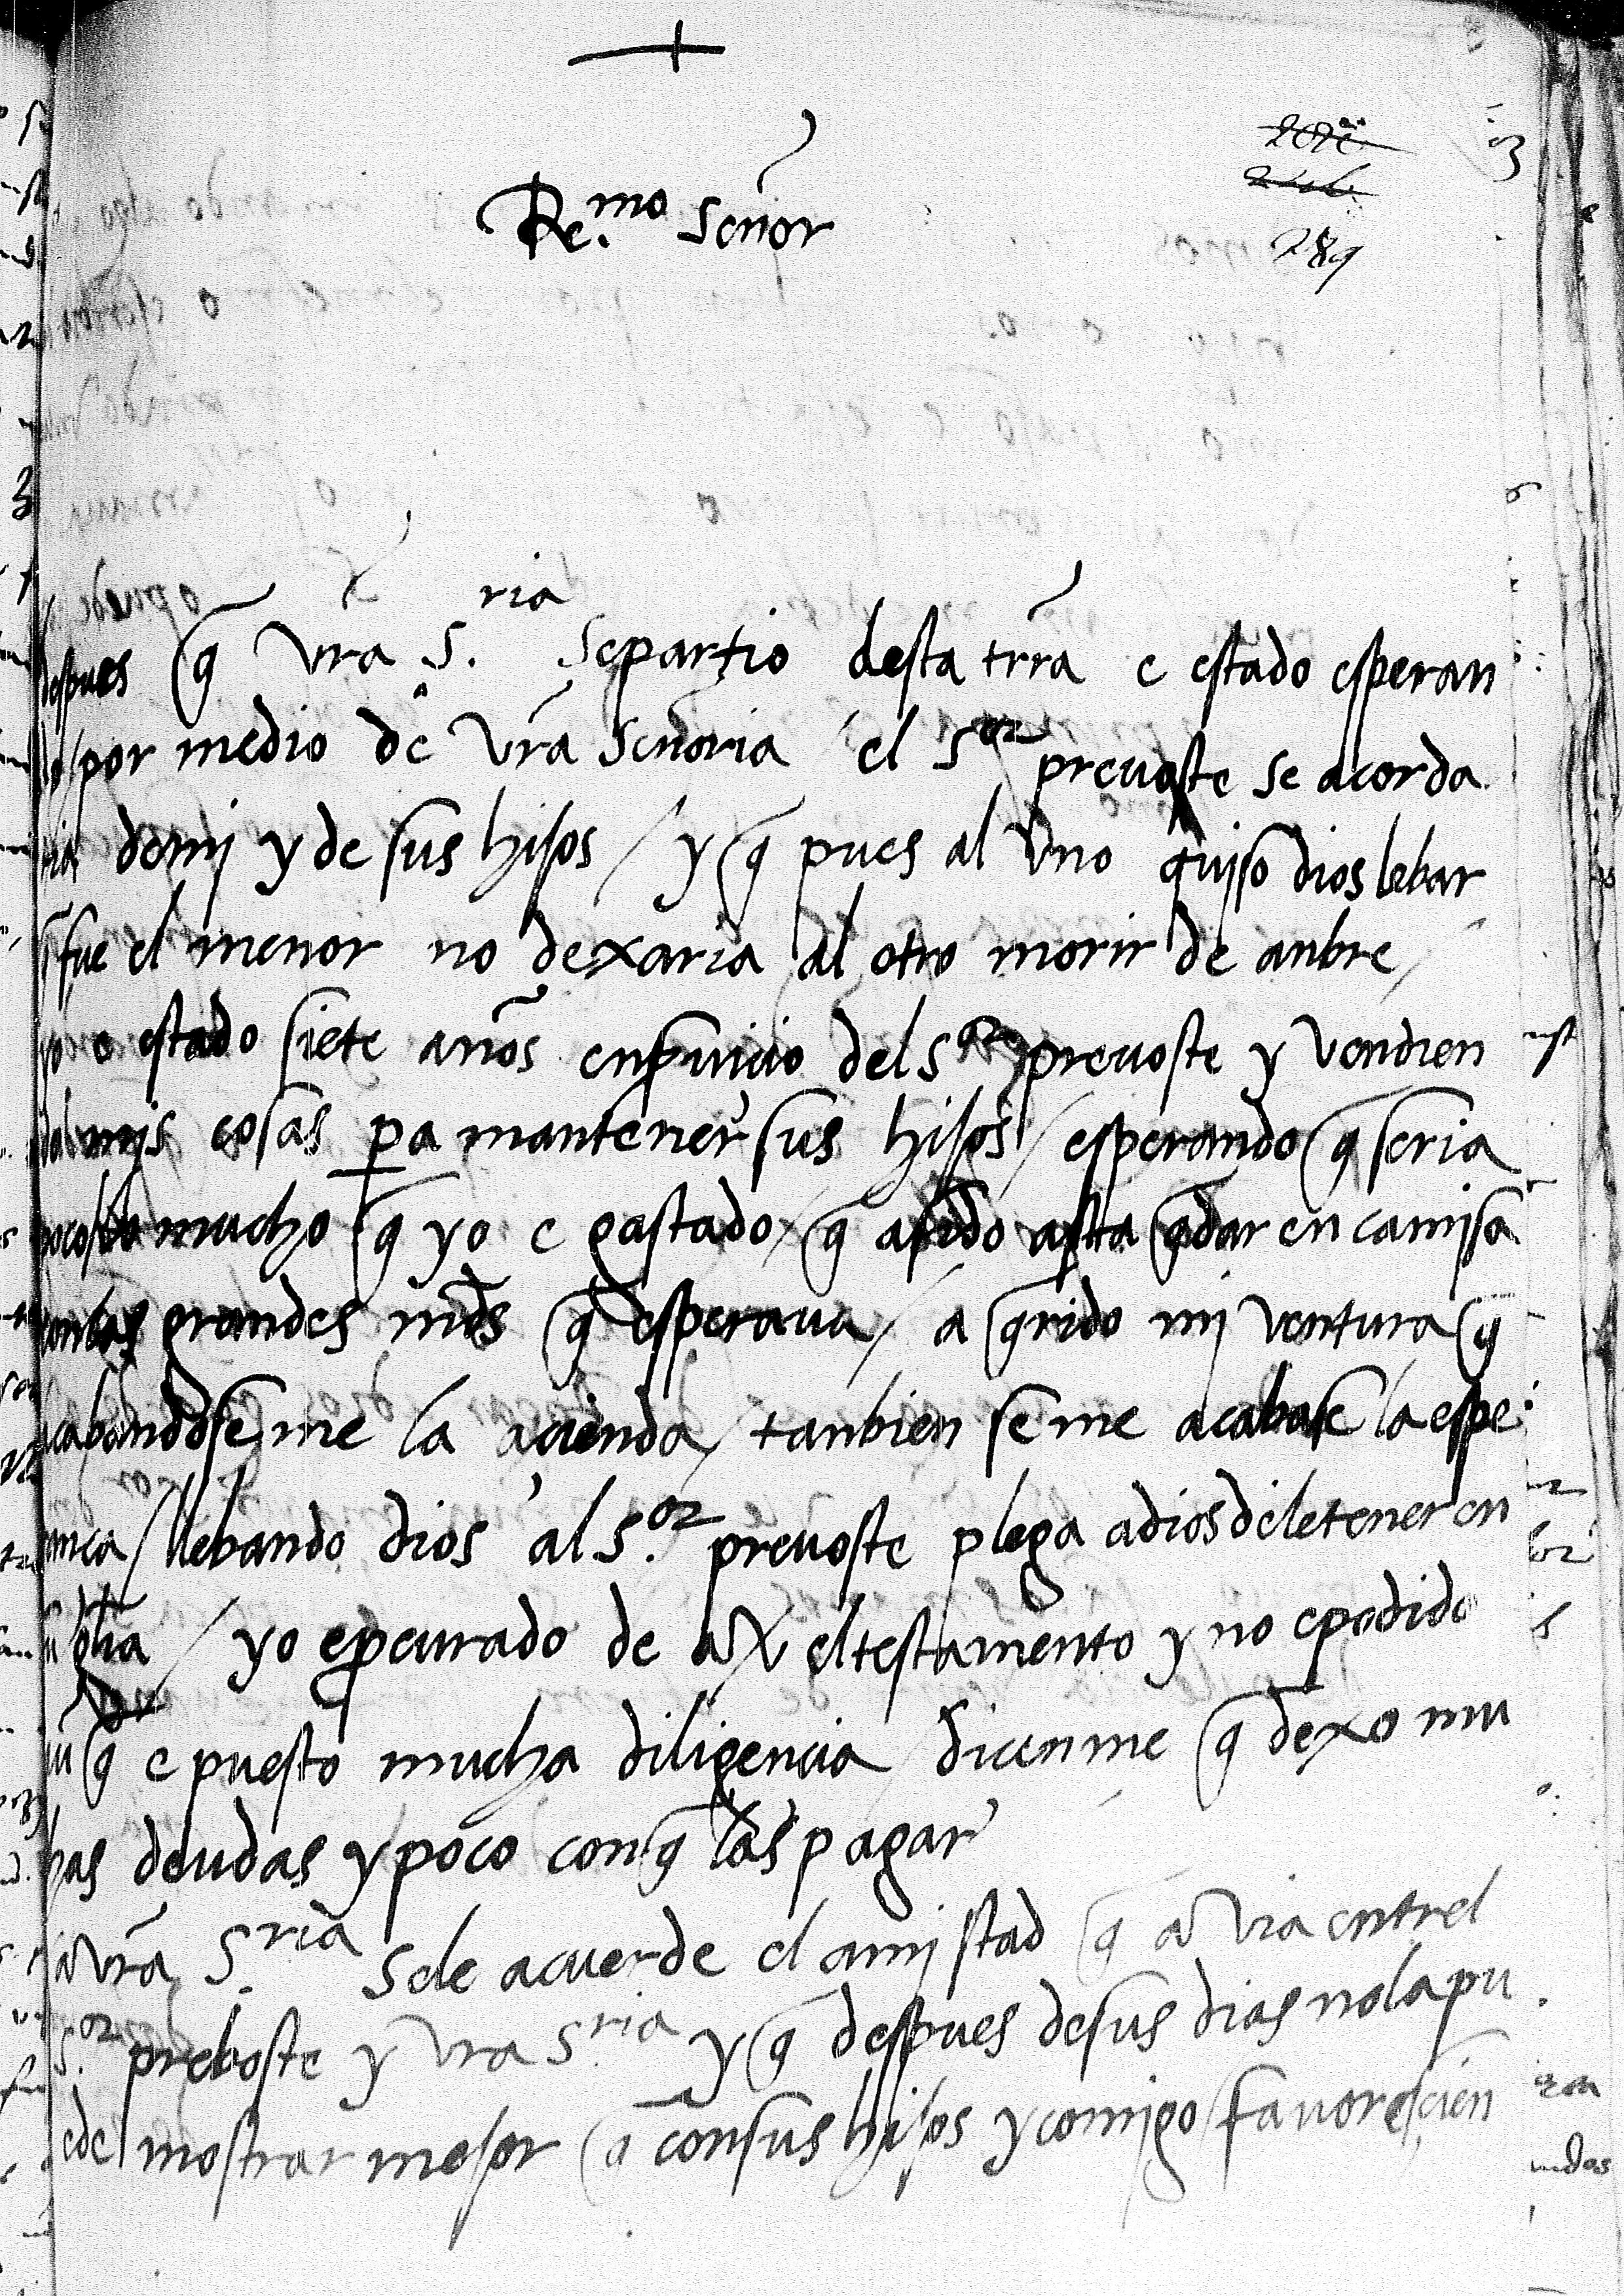 Re.mo señor
289
despues q̃ vra S.ria separtio desta trr̃a e estado esperan
do / por medio de vr̃a señoria / el sor preuoste se acorda
ria demj y de sus hijos / y q̃ pues al vno quiso dios lebar
q̃ fue el menor no dexaria al otro morir de anbre /
yo e estado siete años enseruicio del sor preuoste y vendien
do mjs cosas pa mantener sus hijos / esperando q̃ seria
poco lo mucho q̃ yo e gastado / q̃ asido asta q̃dar en camisa
con las grandes mds̃ q̃ esperaua / a q̃rido mj ventura q̃
acabandoseme la acienda / tanbien seme acabase la espe
ranca / llebando dios al s.or preuoste plega adios deletener en
su glia / yo eprcurado de aver eltestamento y no epodido
avnq̃ e puesto mucha diligencia / dicenme q̃ dexo mu
chas deudas y poco conq̃ las pagar
a vr̃a S.ria sele acuerde el amjstad q̃ avia entrel
s.or preboste y vra S.ria y q̃ despues desus dias nolapu
ede mostrar mejor q̃ consus hijos y comigo / favorescien